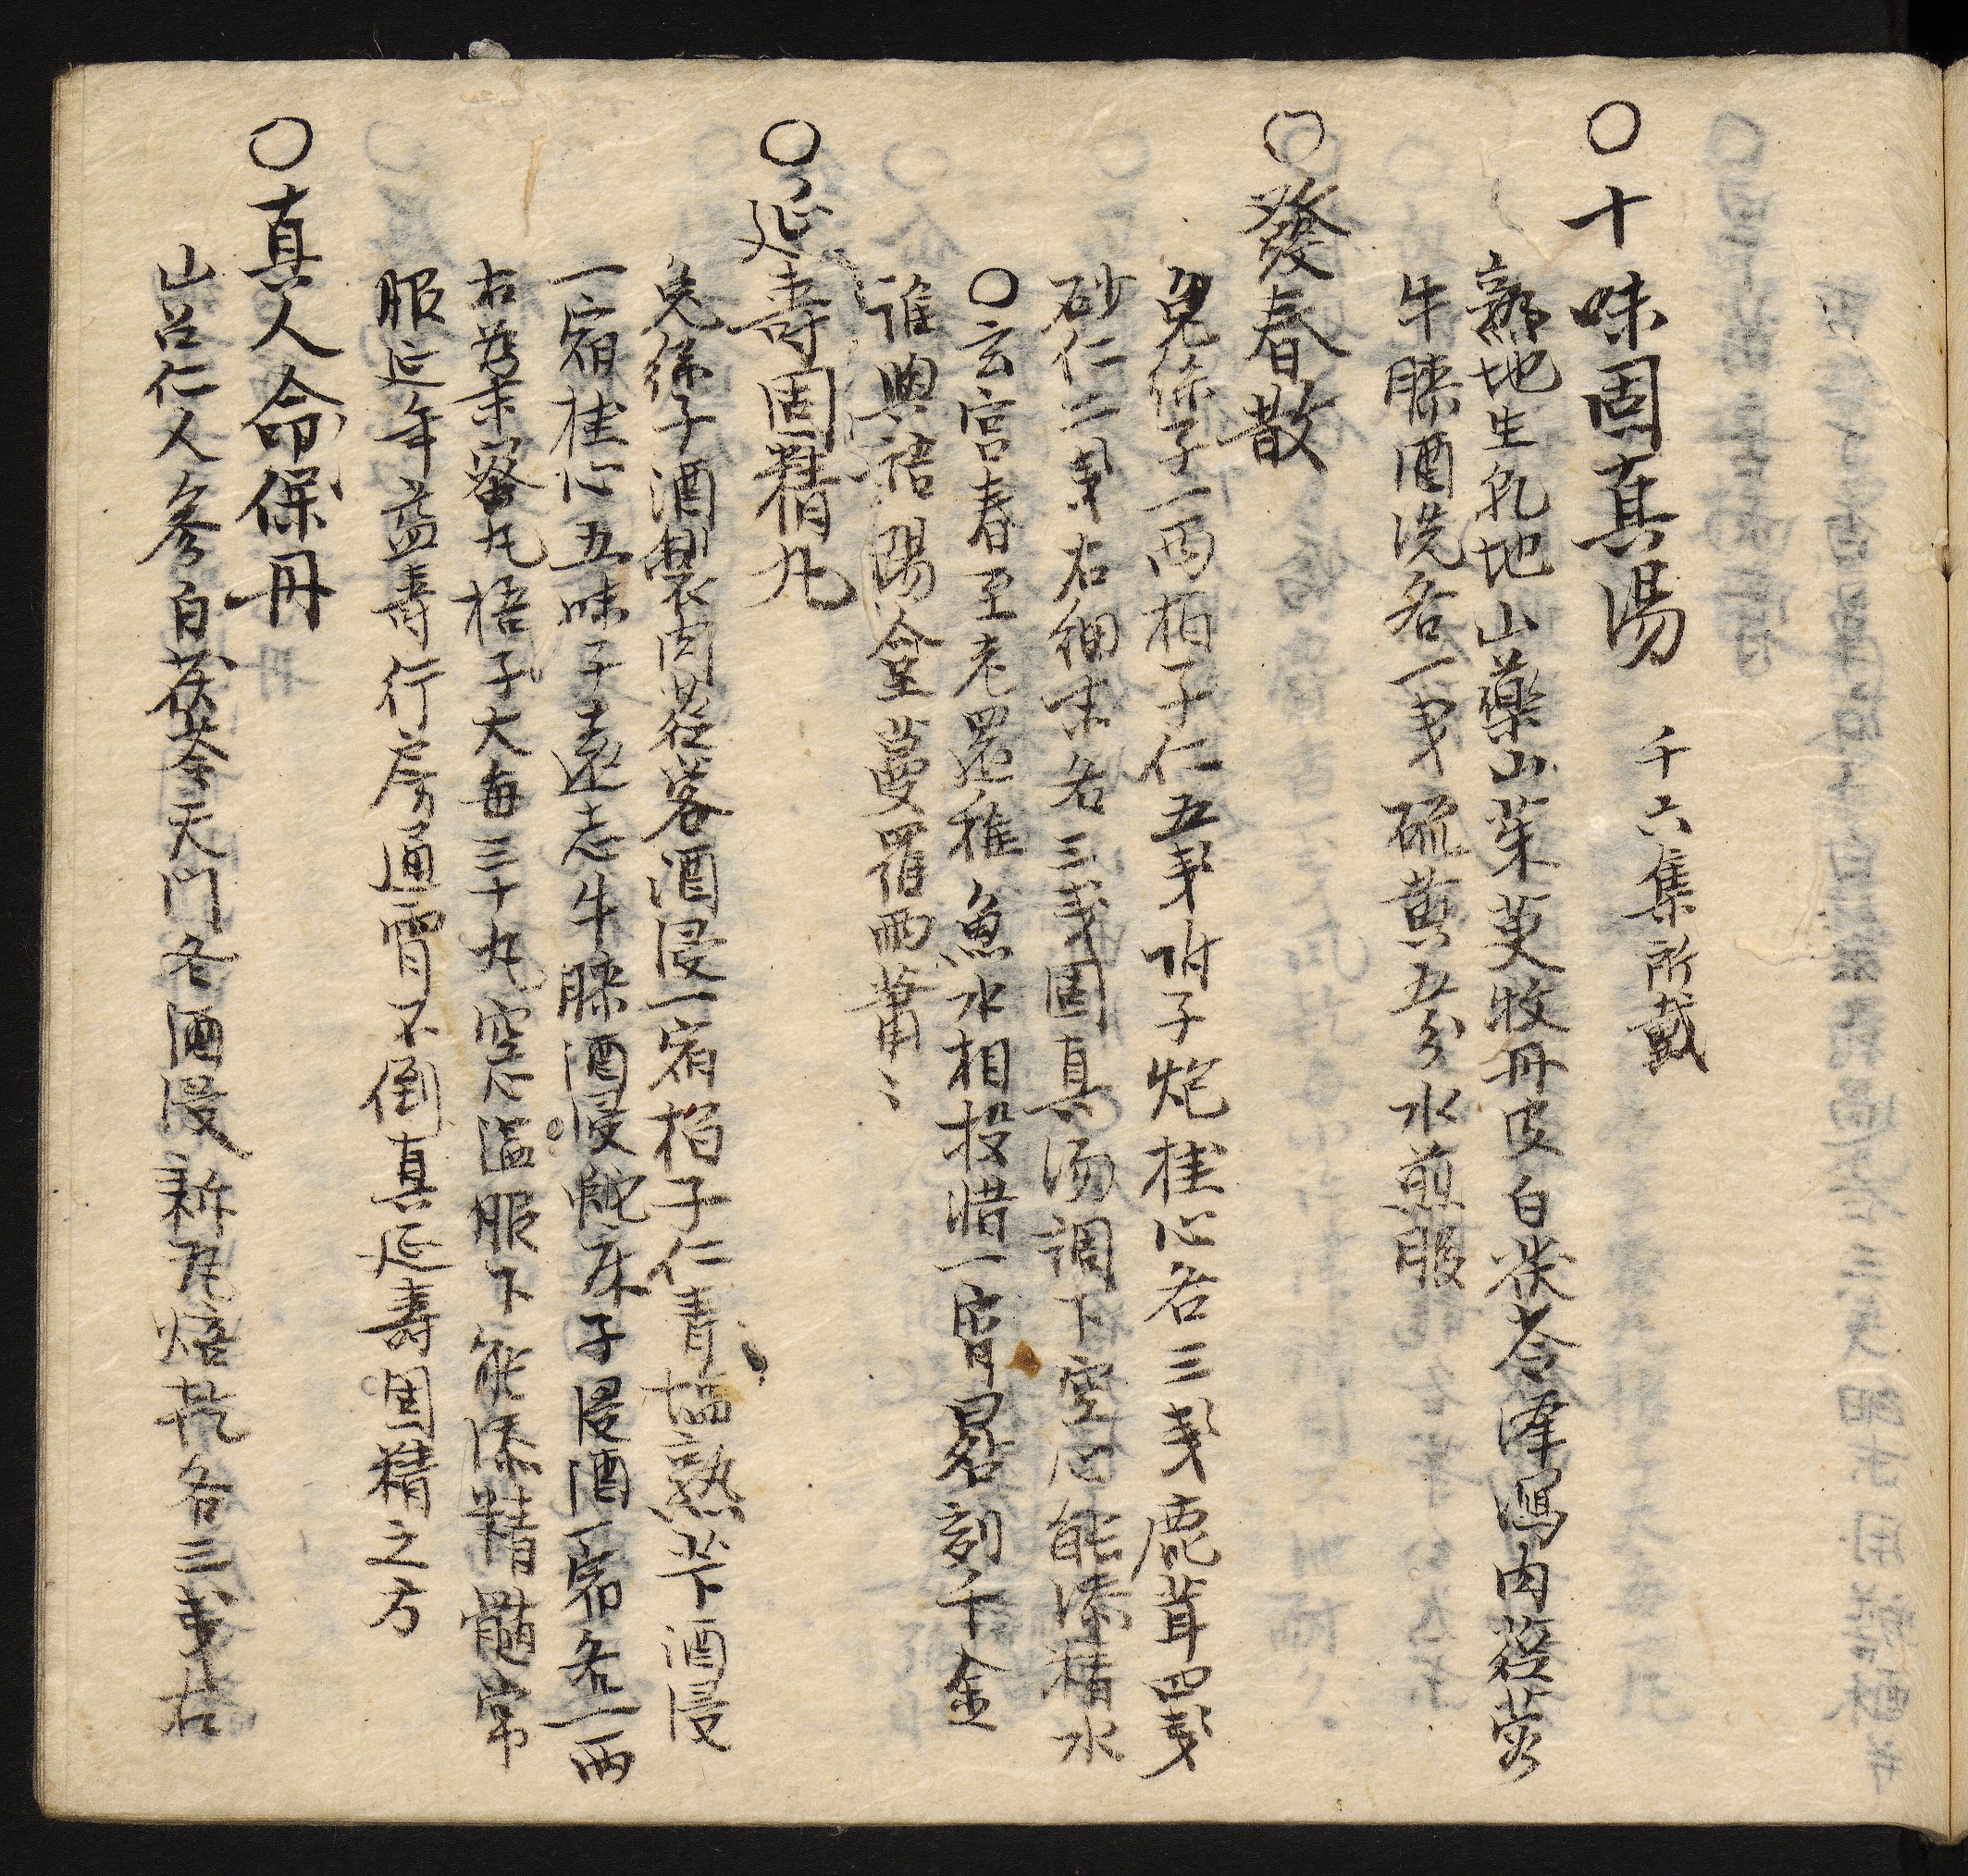 〇十味固真湯 千六集所載
熟地生乾地山藥山茱萸牧丹皮白茯苓澤瀉肉蓯蓉
牛膝酒洗各一戔硫黄五分水煎服
〇發春散
兔絲子一両柏子仁五戔附子炮桂心各三戔鹿茸四戔
砂仁二戔右細末各三戔固真湯調下空心能添精水
〇玄宮春至老還稚魚水相投惜一宵畧刻千金
誰與語陽臺蔓羅雨蕭〻
〇延壽固精丸
兔絲子酒製肉蓯蓉酒浸一宿柏子仁青塩熟苄酒浸
一宿桂心五味子遠志牛膝酒浸蛇床子浸酒一宿各一両
右為末蜜丸梧子大每三十丸空心温服下能添精髓常
服延年益壽行房通宵不倒真延壽固精之方
〇真人命保丹
山呂仁人參白茯苓天門冬酒浸新瓦焙乾各三戔右